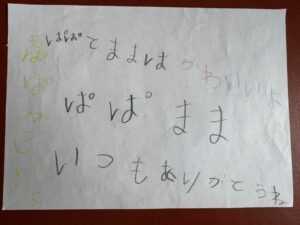 ぱぱとままは かわいいよ
ぱぱ まま
いつもありがとうね
もぱぱかっこいいよ